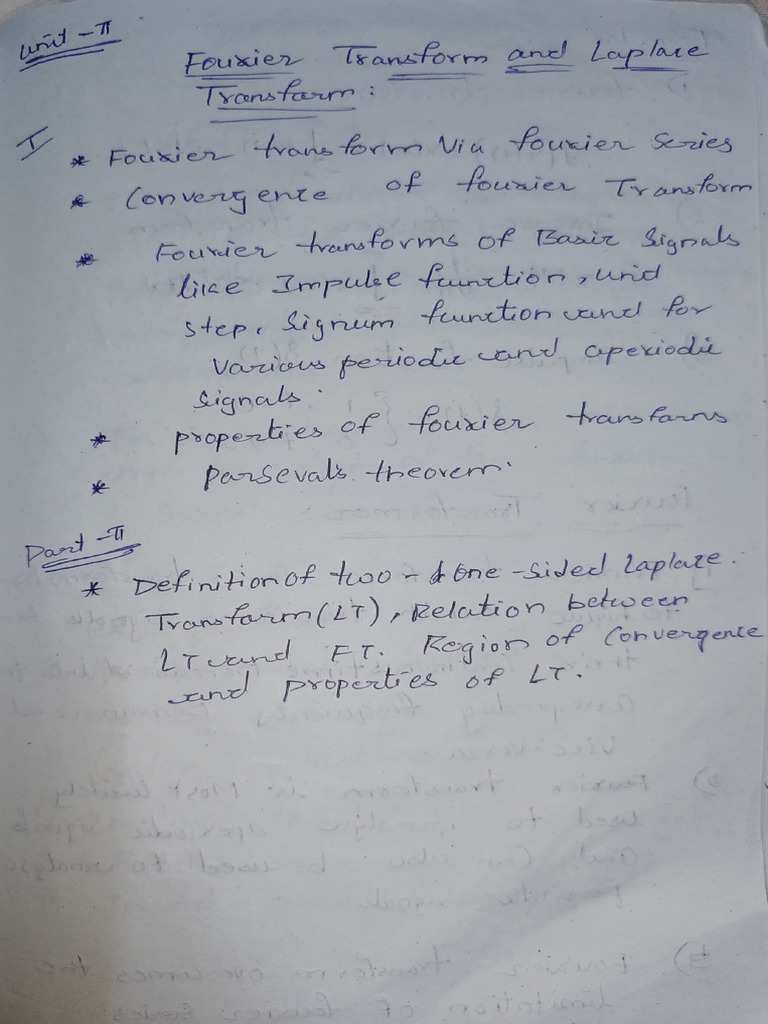 Unit - II
Fourier Transform and Laplace
Transform:
I
* Fourier transform Via fourier Series
* Convergence of fourier Transform
* Fourier transforms of Basic Signals
like Impulse function, unit
step, Signum function and for
Various periodic and aperiodic
signals.
* properties of fourier transforms
* parsevals theorem.
Part - II
* Definition of two - & One - Sided Laplace.
Transform (LT), Relation between
LT and FT. Region of Convergence
and properties of LT.